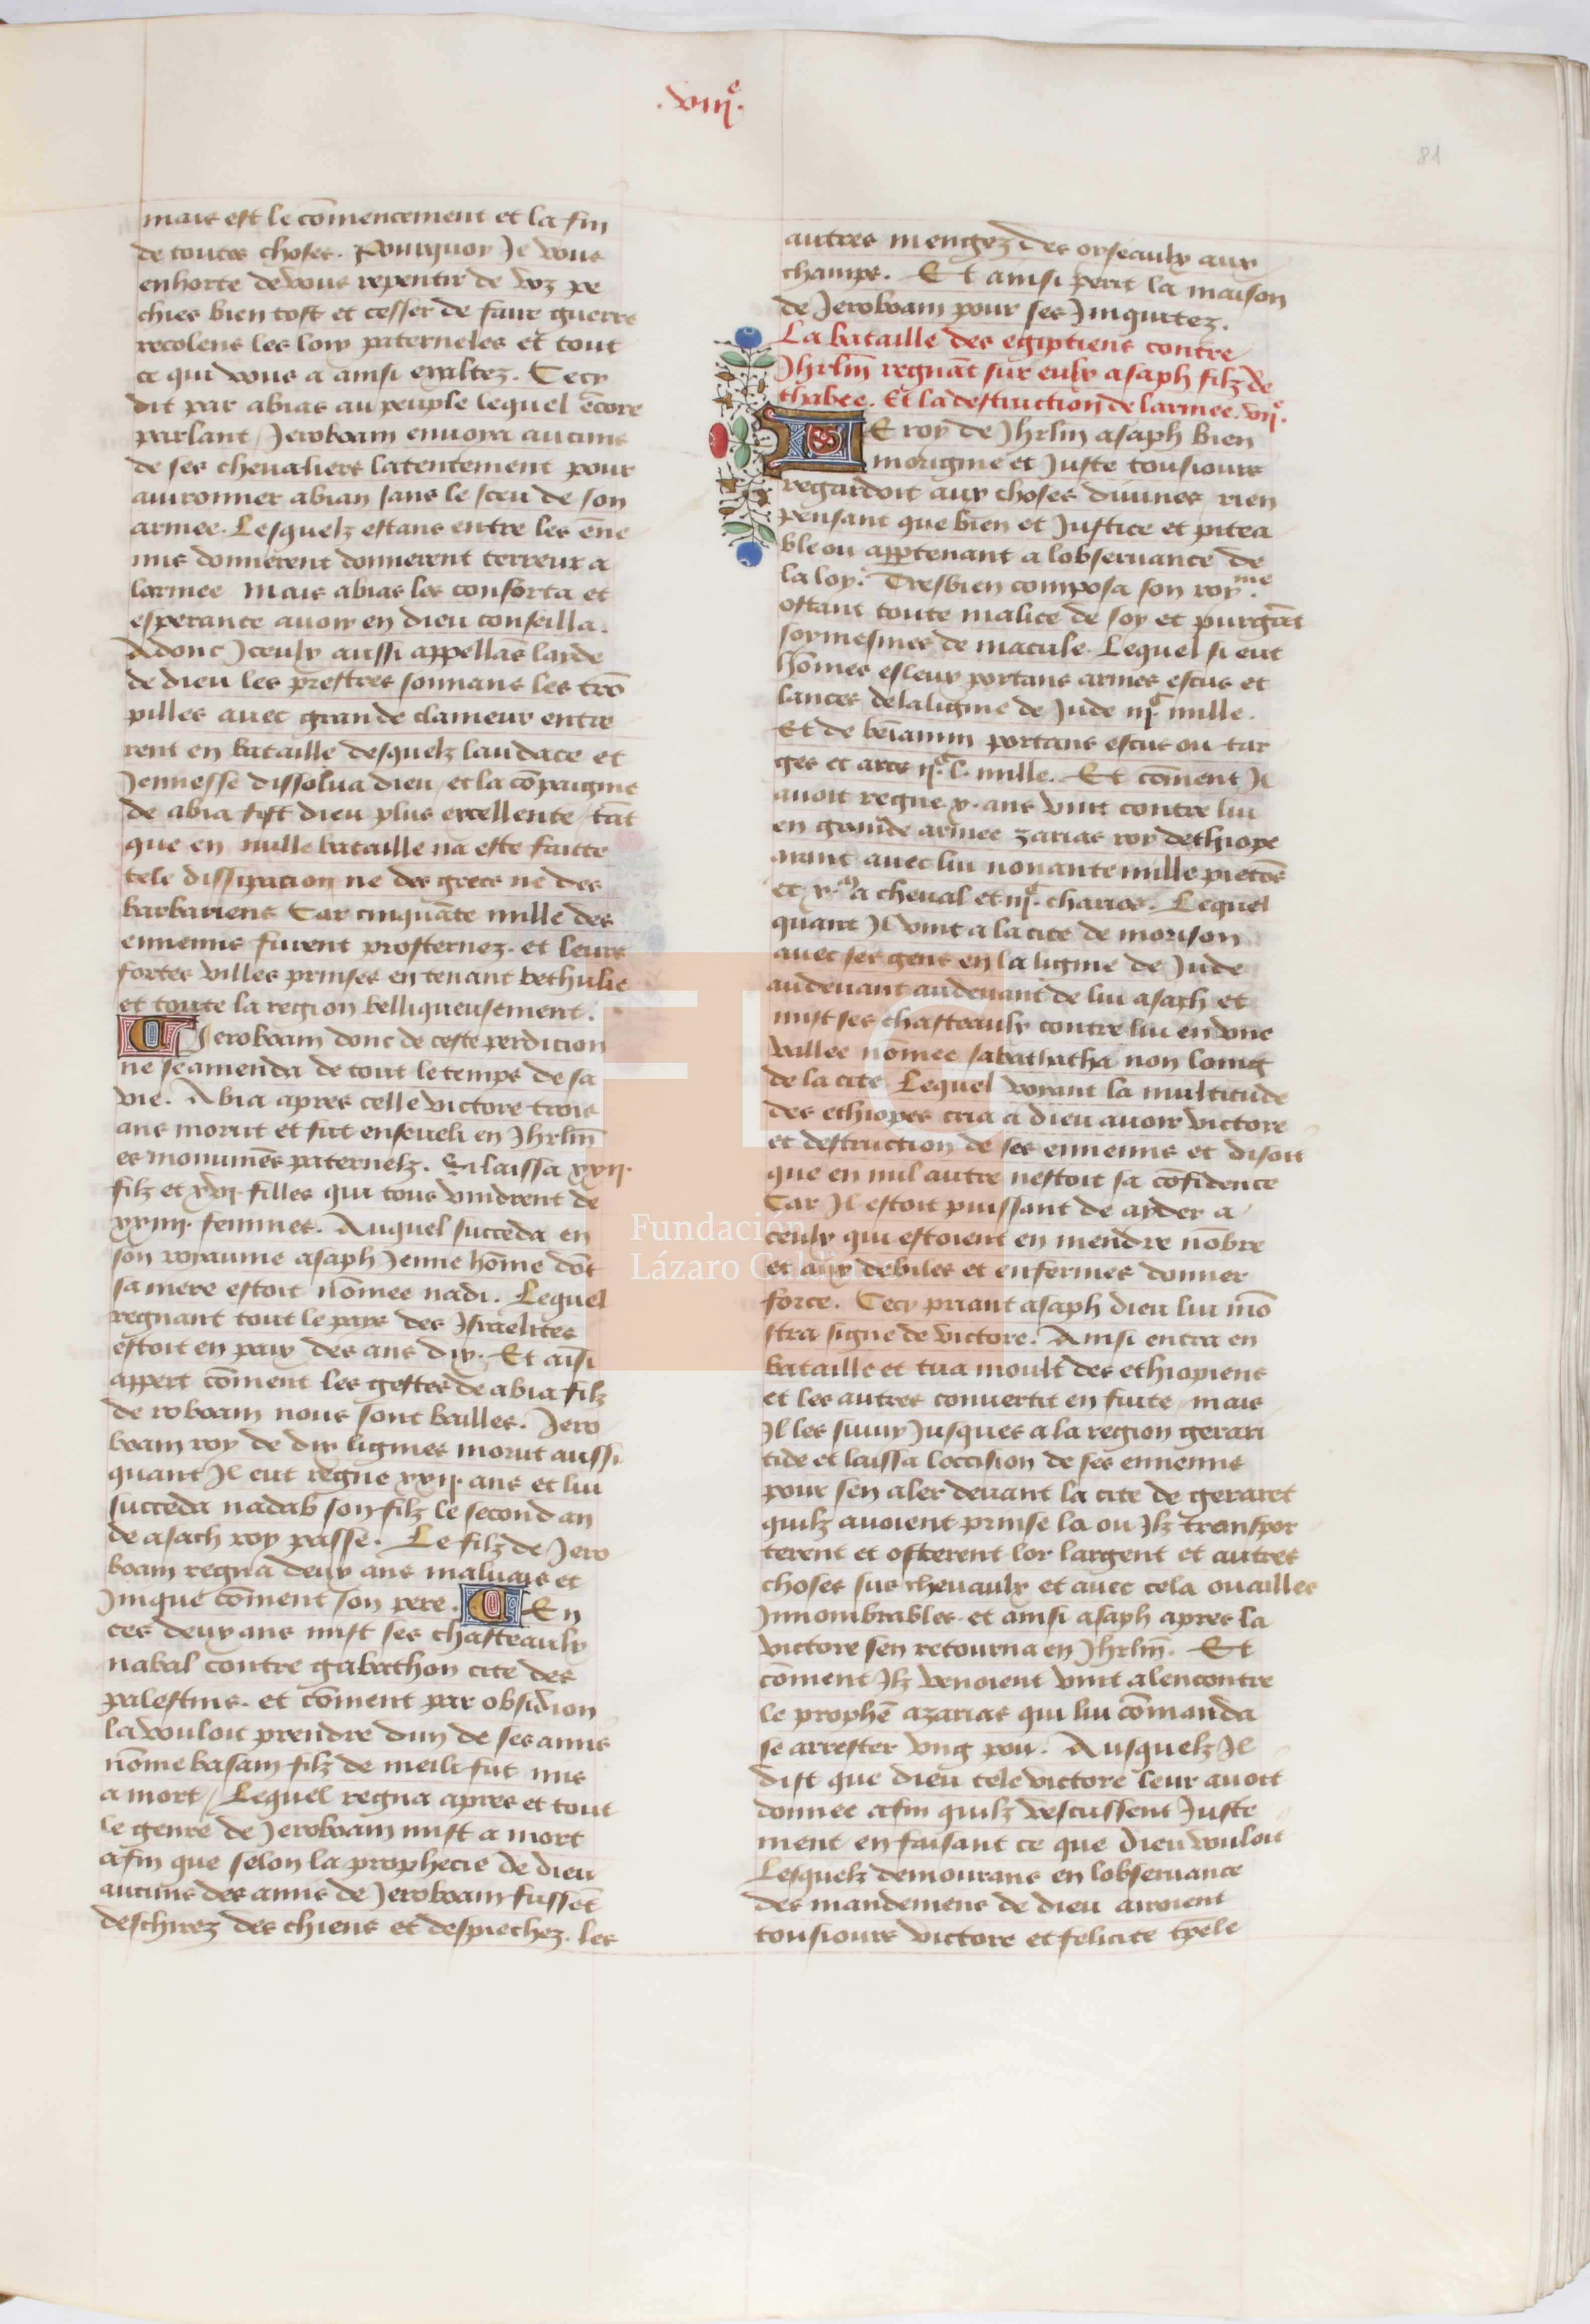 .viije.
81
mais est le cōmencement et la fin
de toutes choses. Pourquoy Je vous
enhorte de vous repentir de voz pe
chies bien tost et cesser de faire guerre
recolens les loix paterneles et tout
ce qui vous a ainsi exaltez. Cecy
dit par abias au peuple lequel ēcore
parlant / Jeroboam enuoya aucuns
de ses cheualiers latentement pour
auironner abian sans le sceu de son
armee. Lesquelz estans entre les ēne
mis donnerent donnerent terreur a
larmee Mais abias les conforta et
esperance auoir en dieu conseilla.
Adonc Jceulx aussi appellās larde
de dieu les prestres sonnans les trō
pilles auec grande clameur entre
rent en bataille desquelz laudace et
Jennesse dissolua dieu / et la cōpaignie
de abia fist dieu plus excellente / tāt
que en nulle bataille na este faitte
tele dissipacion ne des grecs ne des
barbariens Car cinquāte mille des
ennemis furent prosternez. et leurs
fortes villes prinses en tenant bethulie
et toute la region belliqueusement.
Jeroboam donc de ceste perdicion
ne se amenda de tout le temps de sa
vie. Abia apres celle victore trois
ans morut et fut enseueli en Jhrlm̄
es monumēs paternelz. Et laissa xxij.
filz et xvj. filles qui tous vindrent de
xxiiij. femmes. Auquel succeda en
son royaume asaph Jenne hōme dōt
sa mere estoit nōmee nadi. Lequel
regnant tout le pays des Israelites
estoit en paix des ans dix. Et aīsi
appert cōment les gestes de abia filz
de roboam nous sont bailles. Jero
boam roy de dix lignies morut aussi
quant Jl eut regne xxij. ans et lui
succeda nadab son filz le second an
de asach roy passe. Le filz de Jero
boam regna deux ans maluais et
Jnique cōment son pere. En
ces deux ans mist ses chasteaulx
nabal contre gabathon cite des
palestins. et cōment par obsidion
la vouloit prendre dun de ses amis
nōme basam filz de meili fut mis
a mort / Lequel regna apres et tout
le genre de Jeroboam mist a mort
afin que selon la prophecie de dieu
aucuns des amis de Jeroboam fussēt
deschirez des chiens et despiechez. les
autres mengez des oyseaulx aux
champs. Et ainsi perit la maison
de Jeroboam pour ses Jniquitez.
La bataille des egiptiens contre
Jhrlm̄ regnāt sur eulx asaph filz de
thabee. Et la destruction de larmee. vije.
LE roy de Jhrlm̄ asaph bien
morigine et Juste tousiours
regardoit aux choses diuines / rien
pensant que bien et Justice et pitea
ble ou apptenant a lobseruance de
la loy. Tresbien composa son roy.me
ostant toute malice de soy et purgāt
soymesmes de macule. Lequel si eut
hōmes esleux portans armes escus et
lances de la lignie de Jude iijc. mille.
Et de beniamin portans escus ou tar
ges et arcs ijc. l. mille. Et cōment Jl
auoit regne .x. ans vint contre lui
en grande armee zarias roy dethiope
aiant auec lui nonante mille pietōs
et x.m a cheual et iijc. charios. Lequel
quant Jl vint a la cite de morison
auec ses gens en la lignie de Jude
audeuant audeuant de lui asaph et
mist ses chasteaulx contre lui en vne
vallee nōmee sabathatha non loing
de la cite. Lequel voyant la multitude
des ethiopes cria a dieu auoir victore
et destruction de ses ennemis et disoit
que en nul autre nestoit sa cōfidence
Car Jl estoit puissant de ayder a
ceulx qui estoient en mendre nōbre
et aux debiles et enfermes donner
force. Cecy priant asaph dieu lui mō
stra signe de victore. Ainsi entra en
bataille et tua moult des ethiopiens
et les autres conuertit en fuite / mais
Jl les suiuy Jusques a la region gerari
tide et laissa loccision de ses ennemis
pour sen aler deuant la cite de geraret
quilz auoient prinse la ou Jlz transpor
terent et osterent lor largent et autres
choses sus cheuaulx et auec cela ouailles
Jnnombrables. et ainsi asaph apres la
victore sen retourna en Jhrlm̄. Et
cōment Jlz venoient vint alencontre
le prophē azarias qui lui cōmanda
se arrester vng pou. Ausquelz Jl
dist que dieu tele victore leur auoit
donnee afin quilz vescussent Juste
ment en faisant ce que dieu vouloit
Lesquelz demourans en lobseruance
des mandemens de dieu auroient
tousiours victore et felicite tpele
Fundación
Lázaro Galdiano